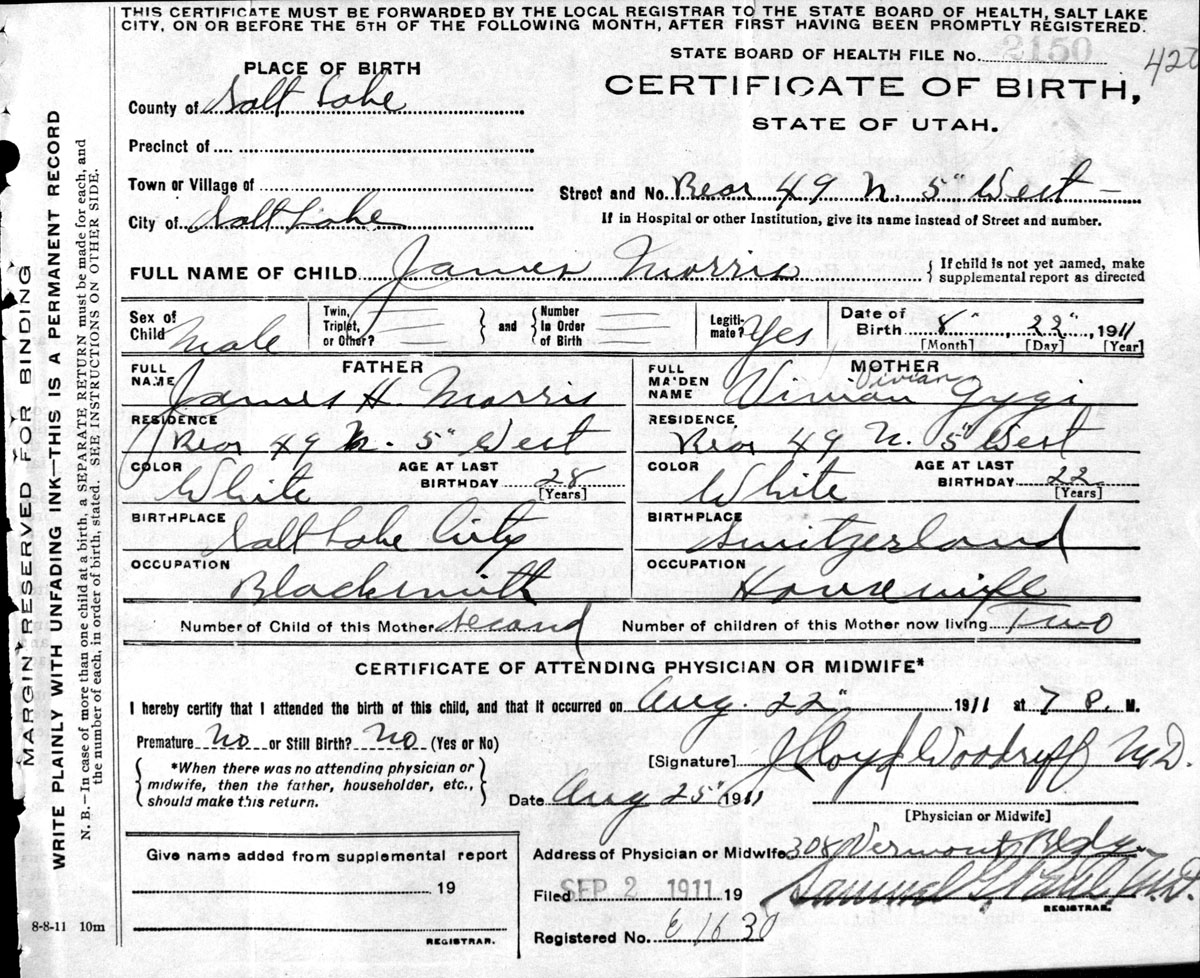 THIS CERTIFICATE MUST BE FORWARDED BY THE LOCAL REGISTRAR TO THE STATE BOARD OF HEALTH, SALT LAKE
CITY, ON OR BEFORE THE 5TH OF THE FOLLOWING MONTH, AFTER FIRST HAVING BEEN PROMPTLY REGISTERED.
STATE BOARD OF HEALTH FILE No. 2150
420
PLACE OF BIRTH
CERTIFICATE OF BIRTH,
STATE OF UTAH.
County of Salt Lake
Precinct of
Town or Village of
Street and No. Rear 49 N. 5" West
City of Salt Lake
If in Hospital or other Institution, give its name instead of Street and number.
FULL NAME OF CHILD James Morris
{ If child is not yet named, make
supplemental report as directed
Sex of Child Male
Twin, Triplet, or Other?
} and {
Number In Order of Birth
Legiti-mate? Yes
Date of Birth 8" , 22" , 1911
[Month] [Day] [Year]
FATHER
MOTHER
FULL NAME James H. Morris
FULL MAIDEN NAME Vivian Gygi
Vivian
RESIDENCE Rear 49 N. 5" West
RESIDENCE Rear 49 N. 5" West
COLOR White
AGE AT LAST BIRTHDAY 28 [Years]
COLOR White
AGE AT LAST BIRTHDAY 22 [Years]
BIRTHPLACE Salt Lake City
BIRTHPLACE Switzerland
OCCUPATION Blacksmith
OCCUPATION Housewife
Number of Child of this Mother Second
Number of children of this Mother now living Two
CERTIFICATE OF ATTENDING PHYSICIAN OR MIDWIFE*
I hereby certify that I attended the birth of this child, and that it occurred on Aug. 22" 1911 at 7 P. M.
Premature No or Still Birth? No (Yes or No)
{ *When there was no attending physician or
midwife, then the father, householder, etc.,
should make this return. }
[Signature] J Lloyd Woodruff M.D.
Date Aug 25" 1911
[Physician or Midwife]
Give name added from supplemental report
19
REGISTRAR.
Address of Physician or Midwife 308 Vermont Bldg
Filed SEP 2 1911 19
Samuel G. M.D.
REGISTRAR.
Registered No. E 1630
8-8-11 10m
MARGIN RESERVED FOR BINDING
WRITE PLAINLY WITH UNFADING INK—THIS IS A PERMANENT RECORD
N. B.—In case of more than one child at a birth, a SEPARATE RETURN must be made for each, and
the number of each, in order of birth, stated. SEE INSTRUCTIONS ON OTHER SIDE.